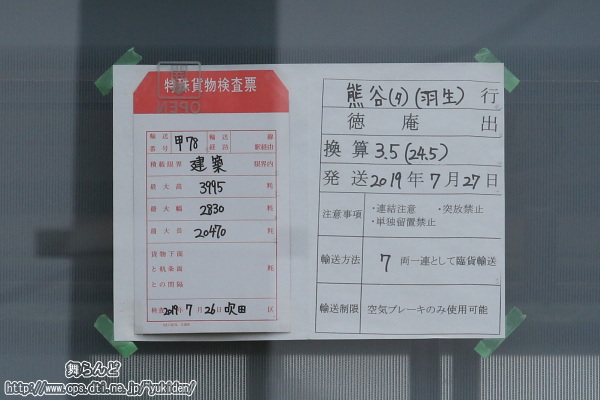 特殊貨物検査票
OPEN
輸送番号 甲78 輸送経路 線駅経由
積載限界 建築 限界内
最大高 3995 粍
最大幅 2830 粍
最大長 20470 粍
貨物下面
と軌条面 粍
との間隔
検査 2019年 7月 26日 吹田 区
熊谷(タ)(羽生) 行
徳庵 出
換算 3.5 (24.5)
発送 2019年 7月 27日
注意事項 ・連結注意 ・突放禁止
・単独留置禁止
輸送方法 7 両一連として臨貨輸送
輸送制限 空気ブレーキのみ使用可能
舞らんど
http://www.ops.dti.ne.jp/~yukiden/